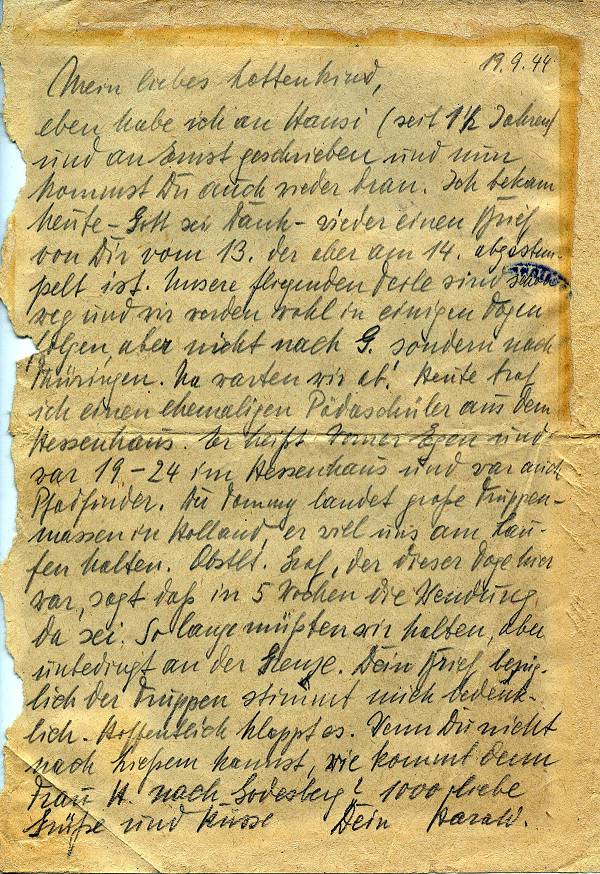 19.9.44
Mein liebes Lottenkind,
eben habe ich an Hansi (seit 1½ Jahren)
und an Ernst geschrieben und nun
kommst Du auch wieder dran. Ich bekam
heute - Gott sei Dank - wieder einen Brief
von Dir vom 13. der aber am 14. abgestem-
pelt ist. Unsere fliegenden Kerle sind schon
weg und wir werden wohl in einigen Tagen
folgen, aber nicht nach G. sondern nach
Thüringen. Na warten wir ab! Heute traf
ich einen ehemaligen Pädaschüler aus dem
Hessenhaus. Er heißt Werner Egen und
war 19-24 im Hessenhaus und war auch
Pfadfinder. Der Tommy landet große Truppen-
massen in Holland, er will uns am Lau-
fen halten. Obstlt. Graf, der dieser Tage hier
war, sagt daß in 5 Wochen die Wendung
da sei. So lange müßten wir halten, aber
unbedingt an der Grenze. Dein Brief bezüg-
lich der Truppen stimmt mich bedenk-
lich. Hoffentlich klappt es. Wenn Du nicht
nach Gießen kannst, wie kommt denn
Frau H. nach Godesberg? 1000 liebe
Grüße und Küsse Dein Harald.